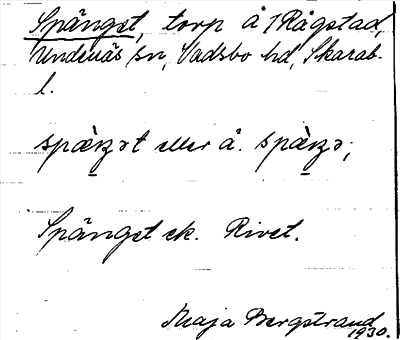 Spänget, torp å 1 Rågstad,
Undenäs sn, Vadsbo hd, Skarab.
l.
eller å.
Spänget ek. Rivet.
Maja Bergstrand
1930.